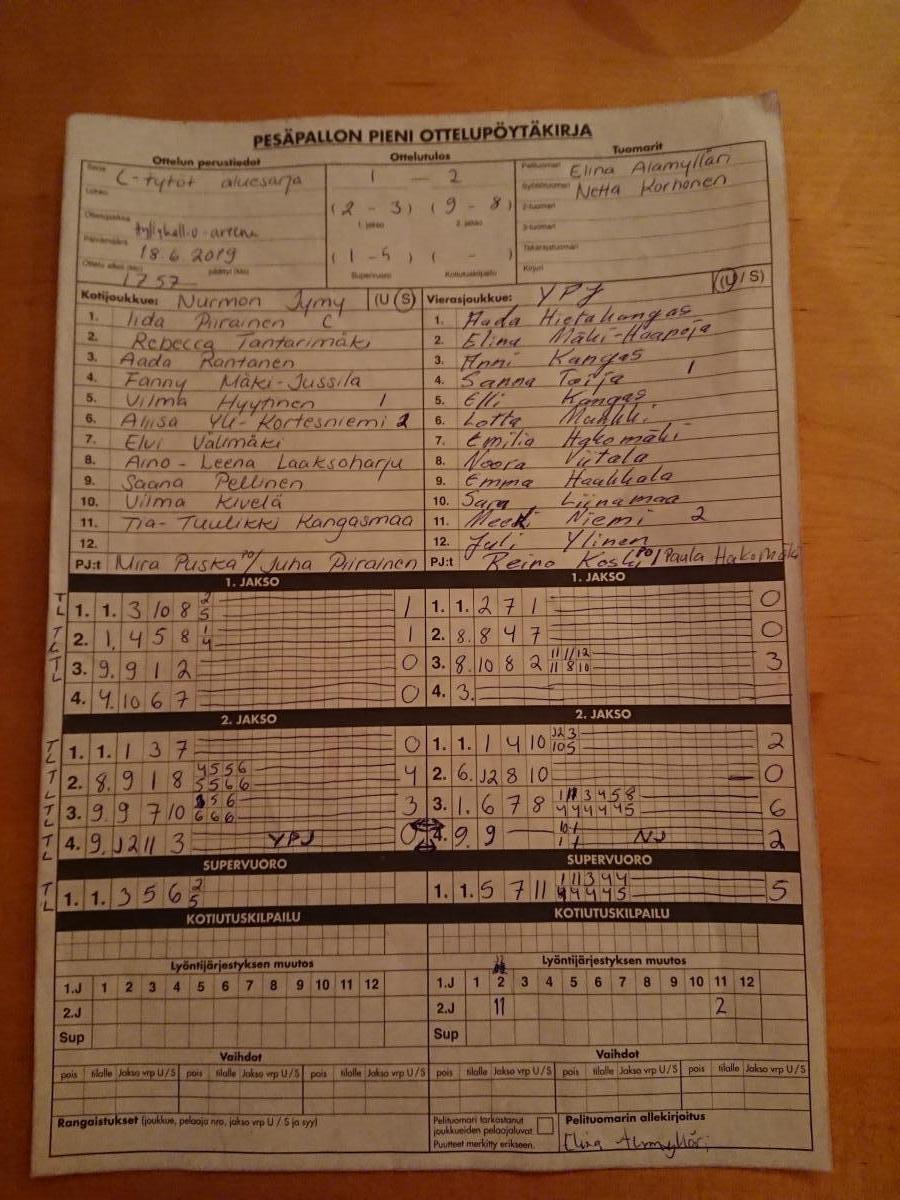 PESÄPALLON PIENI OTTELUPÖYTÄKIRJA
Ottelun perustiedot
Sarja C-tytöt aluesarja
Lohko
Ottelupaikka
Päivämäärä 18.6.2019
Ottelu alkoi (klo) 1757 päättyi (klo)
Ottelutulos
1 - 2
(2 - 3) (9 - 8)
1. jakso 2. jakso
(1 - 5) ( - )
Supervuoro Kotiutuskilpailu
Tuomarit
Pelituomari Elina Alamylläri
Syöttötuomari Netta Korhonen
2-tuomari
3-tuomari
Takarajatuomari
Kirjuri
Kotijoukkue: Nurmon Jymy (U/S)
1. Iida Piirainen C
2. Rebecca Tantarimäki
3. Aada Rantanen
4. Fanny Mäki-Jussila
5. Vilma Hyytinen 1
6. Aliisa Yli-Kortesniemi 2
7. Elvi Välimäki
8. Aino-Leena Laaksoharju
9. Saana Pellinen
10. Vilma Kivelä
11. Tia-Tuulikki Kangasmaa
12.
PJ:t Mira Puska PO/ Juha Piirainen
Vierasjoukkue: YPJ (U/S)
1. Aada Hietakangas
2. Elina Mäki-Haapoja
3. Anni Kangas
4. Sanna Taija 1
5. Elli Kangas
6. Lotta
7. Emilia Hakomäki
8. Noora Viitala
9. Emma Haukkala
10. Sara Liinamaa
11. Niemi 2
12. Juli Ylinen
PJ:t Reino Koski PO/ Paula Hakomäki
1. JAKSO
TL 1. 1. 3 10 8 2 5 1
TL 2. 1. 4 5 8 1 4 1
TL 3. 9. 9 1 2 0
4. 4. 10 6 7 0
1. JAKSO
1. 1. 2 7 1 0
2. 8. 8 4 7 0
3. 8. 10 8 2 11 11 12 11 8 10 3
4. 3.
2. JAKSO
TL 1. 1. 1 3 7 0
TL 2. 8. 9 1 8 4556 5566 4
TL 3. 9. 9 7 10 56 666 3
TL 4. 9. 12 11 3 YPJ 0
2. JAKSO
1. 1. 1 4 10 12 3 10 5 2
2. 6. 12 8 10 0
3. 1. 6 7 8 6
4. 9. 9 NJ 2
SUPERVUORO
TL 1. 1. 3 5 6 2 5
SUPERVUORO
1. 1. 5 7 11 5
KOTIUTUSKILPAILU
KOTIUTUSKILPAILU
Lyöntijärjestyksen muutos
1.J 1 2 3 4 5 6 7 8 9 10 11 12
2.J
Sup
Lyöntijärjestyksen muutos
1.J 1 2 3 4 5 6 7 8 9 10 11 12
2.J 11 2
Sup
Vaihdot
pois tilalle Jakso vrp U/S pois tilalle Jakso vrp U/S pois tilalle Jakso vrp U/S
Vaihdot
pois tilalle Jakso vrp U/S pois tilalle Jakso vrp U/S pois tilalle Jakso vrp U/S
Rangaistukset (joukkue, pelaaja nro, jakso vrp U / S ja syy)
Pelituomari tarkastanut
joukkueiden pelaajaluvat
Puutteet merkitty erikseen.
Pelituomarin allekirjoitus
Elina Alamylläri